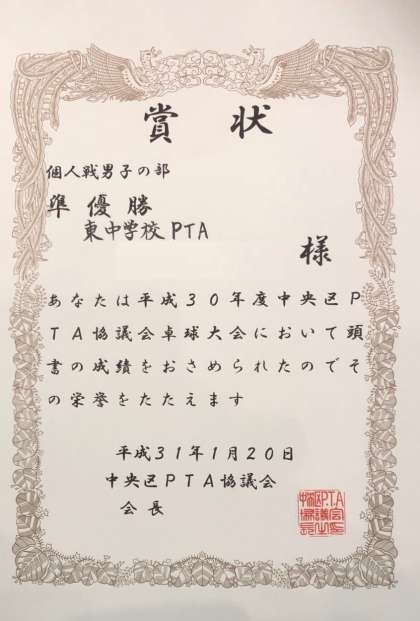 賞状
個人戦男子の部
準優勝
東中学校PTA
様
あなたは平成30年度中央区P
TA協議会卓球大会において頭
書の成績をおさめられたのでそ
の栄誉をたたえます
平成31年1月20日
中央区PTA協議会
会長